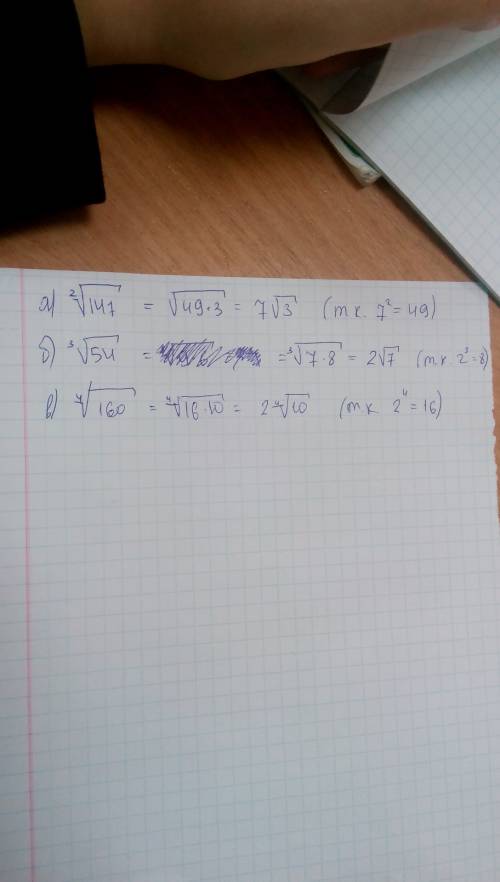 а) ²√147 = √49·3 = 7√3 (т.к. 7² = 49)
б) ³√54 = = ³√7·8 = 2√7 (т.к. 2³ = 8)
в) ⁴√160 = ⁴√16·10 = 2 ⁴√10 (т.к 2⁴ = 16)